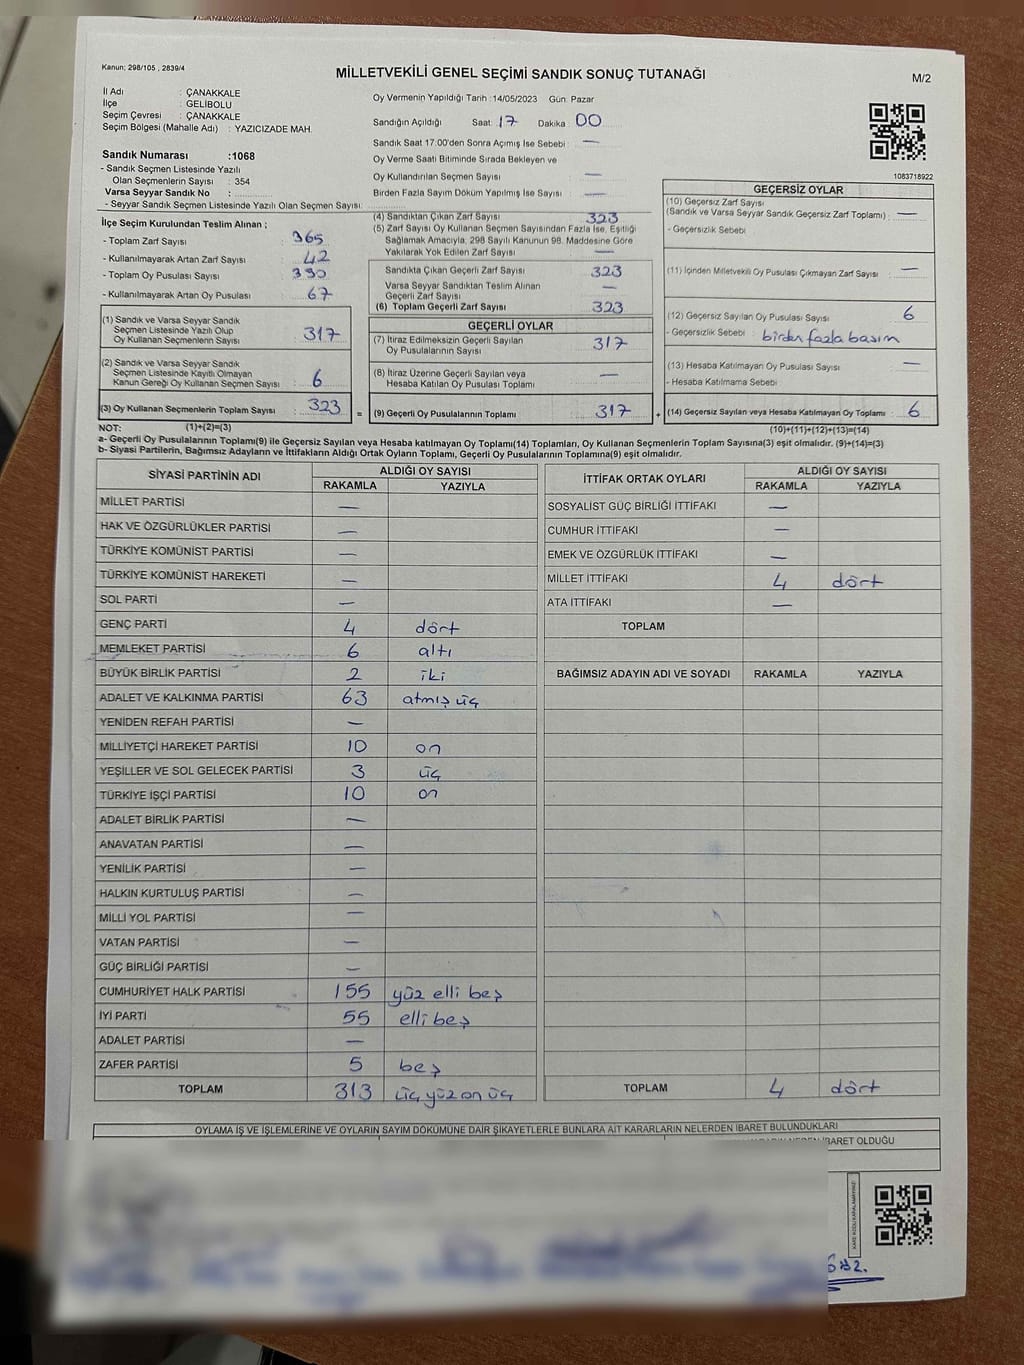 Kanun: 298/105 , 2839/4
MİLLETVEKİLİ GENEL SEÇİMİ SANDIK SONUÇ TUTANAĞI
M/2
İl Adı : ÇANAKKALE
İlçe : GELİBOLU
Seçim Çevresi : ÇANAKKALE
Seçim Bölgesi (Mahalle Adı) : YAZICIZADE MAH.
Sandık Numarası :1068
- Sandık Seçmen Listesinde Yazılı
Olan Seçmenlerin Sayısı : 354
Varsa Seyyar Sandık No :
- Seyyar Sandık Seçmen Listesinde Yazılı Olan Seçmen Sayısı:
Oy Vermenin Yapıldığı Tarih :14/05/2023 Gün: Pazar
Sandığın Açıldığı Saat: 17 Dakika: 00
Sandık Saat 17.00'den Sonra Açımış İse Sebebi : —
Oy Verme Saati Bitiminde Sırada Bekleyen ve
Oy Kullandırılan Seçmen Sayısı : —
Birden Fazla Sayım Döküm Yapılmış İse Sayısı : —
1083718922
İlçe Seçim Kurulundan Teslim Alınan ;
- Toplam Zarf Sayısı : 365
- Kullanılmayarak Artan Zarf Sayısı : 42
- Toplam Oy Pusulası Sayısı : 390
- Kullanılmayarak Artan Oy Pusulası : 67
(1) Sandık ve Varsa Seyyar Sandık
Seçmen Listesinde Yazılı Olup
Oy Kullanan Seçmenlerin Sayısı : 317
(2) Sandık ve Varsa Seyyar Sandık
Seçmen Listesinde Kayıtlı Olmayan
Kanun Gereği Oy Kullanan Seçmen Sayısı : 6
(3) Oy Kullanan Seçmenlerin Toplam Sayısı : 323
(4) Sandıktan Çıkan Zarf Sayısı : 323
(5) Zarf Sayısı Oy Kullanan Seçmen Sayısından Fazla İse, Eşitliği
Sağlamak Amacıyla, 298 Sayılı Kanunun 98. Maddesine Göre
Yakılarak Yok Edilen Zarf Sayısı : —
Sandıkta Çıkan Geçerli Zarf Sayısı : 323
Varsa Seyyar Sandıktan Teslim Alınan
Geçerli Zarf Sayısı : —
(6) Toplam Geçerli Zarf Sayısı : 323
GEÇERLİ OYLAR
(7) İtiraz Edilmeksizin Geçerli Sayılan
Oy Pusulalarının Sayısı : 317
(8) İtiraz Üzerine Geçerli Sayılan veya
Hesaba Katılan Oy Pusulası Toplamı : —
= (9) Geçerli Oy Pusulalarının Toplamı : 317
GEÇERSİZ OYLAR
(10) Geçersiz Zarf Sayısı
(Sandık ve Varsa Seyyar Sandık Geçersiz Zarf Toplamı) : —
- Geçersizlik Sebebi :
(11) İçinden Milletvekili Oy Pusulası Çıkmayan Zarf Sayısı : —
(12) Geçersiz Sayılan Oy Pusulası Sayısı : 6
- Geçersizlik Sebebi : birden fazla basım
(13) Hesaba Katılmayan Oy Pusulası Sayısı : —
- Hesaba Katılmama Sebebi :
+ (14) Geçersiz Sayılan veya Hesaba Katılmayan Oy Toplamı : 6
NOT: (1)+(2)=(3) (10)+(11)+(12)+(13)=(14)
a- Geçerli Oy Pusulalarının Toplamı(9) ile Geçersiz Sayılan veya Hesaba katılmayan Oy Toplamı(14) Toplamları, Oy Kullanan Seçmenlerin Toplam Sayısına(3) eşit olmalıdır. (9)+(14)=(3)
b- Siyasi Partilerin, Bağımsız Adayların ve İttifakların Aldığı Ortak Oyların Toplamı, Geçerli Oy Pusulalarının Toplamına(9) eşit olmalıdır.
SİYASİ PARTİNİN ADI ALDIĞI OY SAYISI
RAKAMLA YAZIYLA
MİLLET PARTİSİ —
HAK VE ÖZGÜRLÜKLER PARTİSİ —
TÜRKİYE KOMÜNİST PARTİSİ —
TÜRKİYE KOMÜNİST HAREKETİ —
SOL PARTİ —
GENÇ PARTİ 4 dört
MEMLEKET PARTİSİ 6 altı
BÜYÜK BİRLİK PARTİSİ 2 iki
ADALET VE KALKINMA PARTİSİ 63 atmış üç
YENİDEN REFAH PARTİSİ —
MİLLİYETÇİ HAREKET PARTİSİ 10 on
YEŞİLLER VE SOL GELECEK PARTİSİ 3 üç
TÜRKİYE İŞÇİ PARTİSİ 10 on
ADALET BİRLİK PARTİSİ —
ANAVATAN PARTİSİ —
YENİLİK PARTİSİ —
HALKIN KURTULUŞ PARTİSİ —
MİLLİ YOL PARTİSİ —
VATAN PARTİSİ —
GÜÇ BİRLİĞİ PARTİSİ —
CUMHURİYET HALK PARTİSİ 155 yüz elli beş
İYİ PARTİ 55 elli beş
ADALET PARTİSİ —
ZAFER PARTİSİ 5 beş
TOPLAM 313 üç yüz on üç
İTTİFAK ORTAK OYLARI ALDIĞI OY SAYISI
RAKAMLA YAZIYLA
SOSYALİST GÜÇ BİRLİĞİ İTTİFAKI —
CUMHUR İTTİFAKI —
EMEK VE ÖZGÜRLÜK İTTİFAKI —
MİLLET İTTİFAKI 4 dört
ATA İTTİFAKI —
TOPLAM
BAĞIMSIZ ADAYIN ADI VE SOYADI RAKAMLA YAZIYLA
TOPLAM 4 dört
OYLAMA İŞ VE İŞLEMLERİNE VE OYLARIN SAYIM DÖKÜMÜNE DAİR ŞİKAYETLERLE BUNLARA AİT KARARLARIN NELERDEN İBARET BULUNDUKLARI
İBARET OLDUĞU